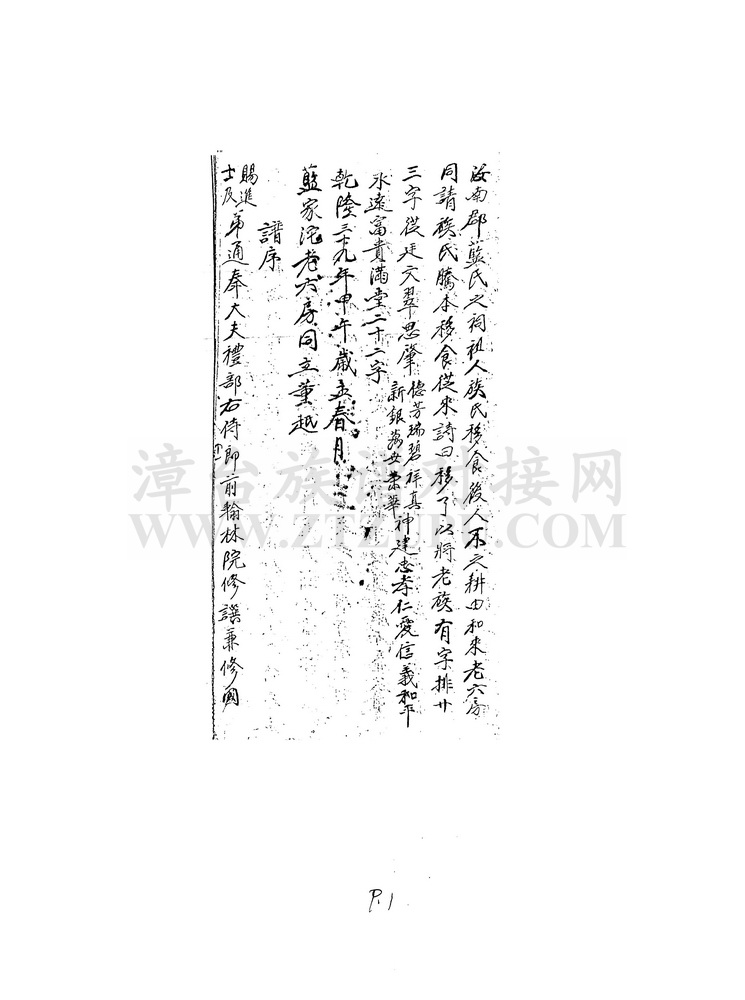 汝南郡藍氏之祠祖人族氏移食後人不之耕由和來老六房
同請族氏騰本移食從來詩曰移了以將老族有字排廿
三字從廷文翠思肇德芳瑞碧祥真神建忠孝仁愛信義和平
新銀安榮華
永遠富貴滿堂二十二字
乾隆三十九年甲午歲立春月
藍家沱老六房同立董越
譜序
賜進士及第通奉大夫禮部右侍郎前翰林院修譔兼修國
漳台族谱对接网
WWW.ZTZUPU.COM
P.1